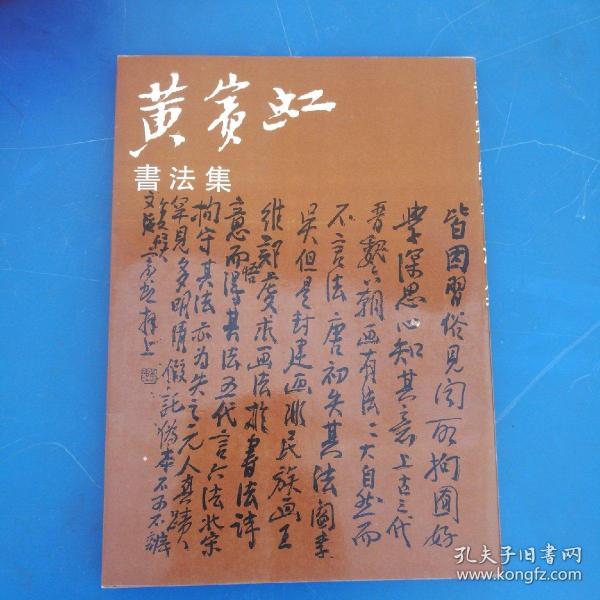 黄宾虹
書法集
皆因習俗見聞所拘囿好
學深思心知其意上古三代
晋魏六朝画有法二大自然而
不言法唐初失其法閻李
吳但是封建画派民族画王
維鄭虔求画法於書法詩
意而得其法五代言六法北宋
拘守其法亦为失之元人真蹟人
罕見多明清假託偽本不可不辨
孔夫子旧书网
www.kongfz.com